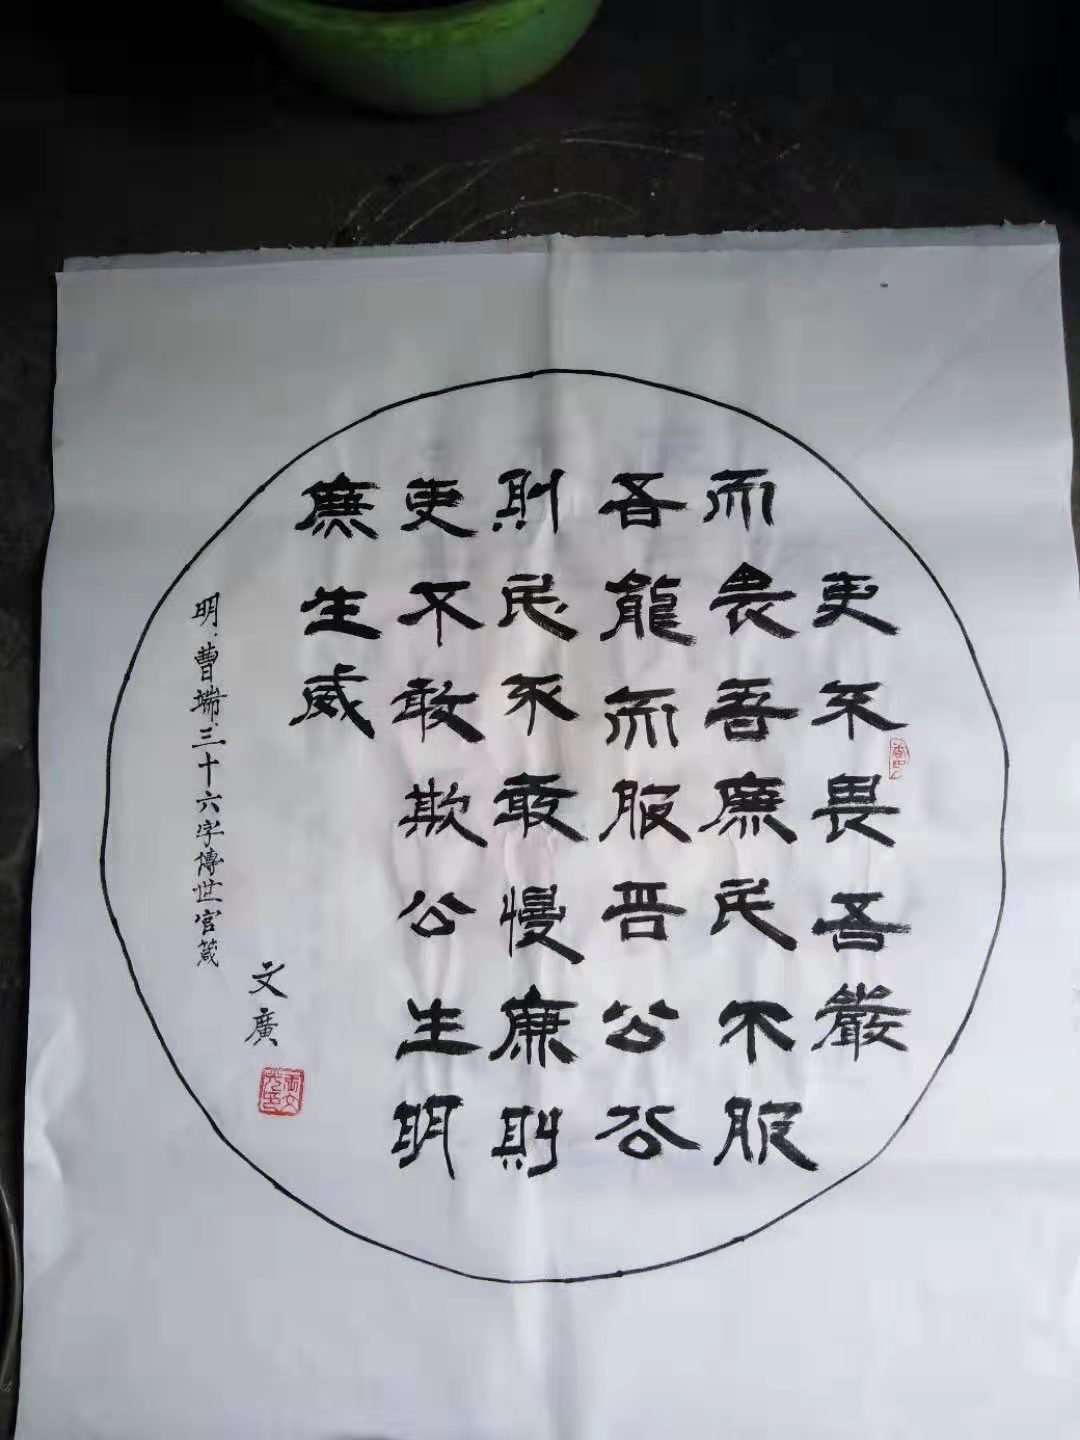 吏不畏吾嚴
而畏吾廉民不服
吾能而服吾公公
則民不敢慢廉則
吏不敢欺公生明
廉生威
明.曹端.三十六字傳世官箴
文廣